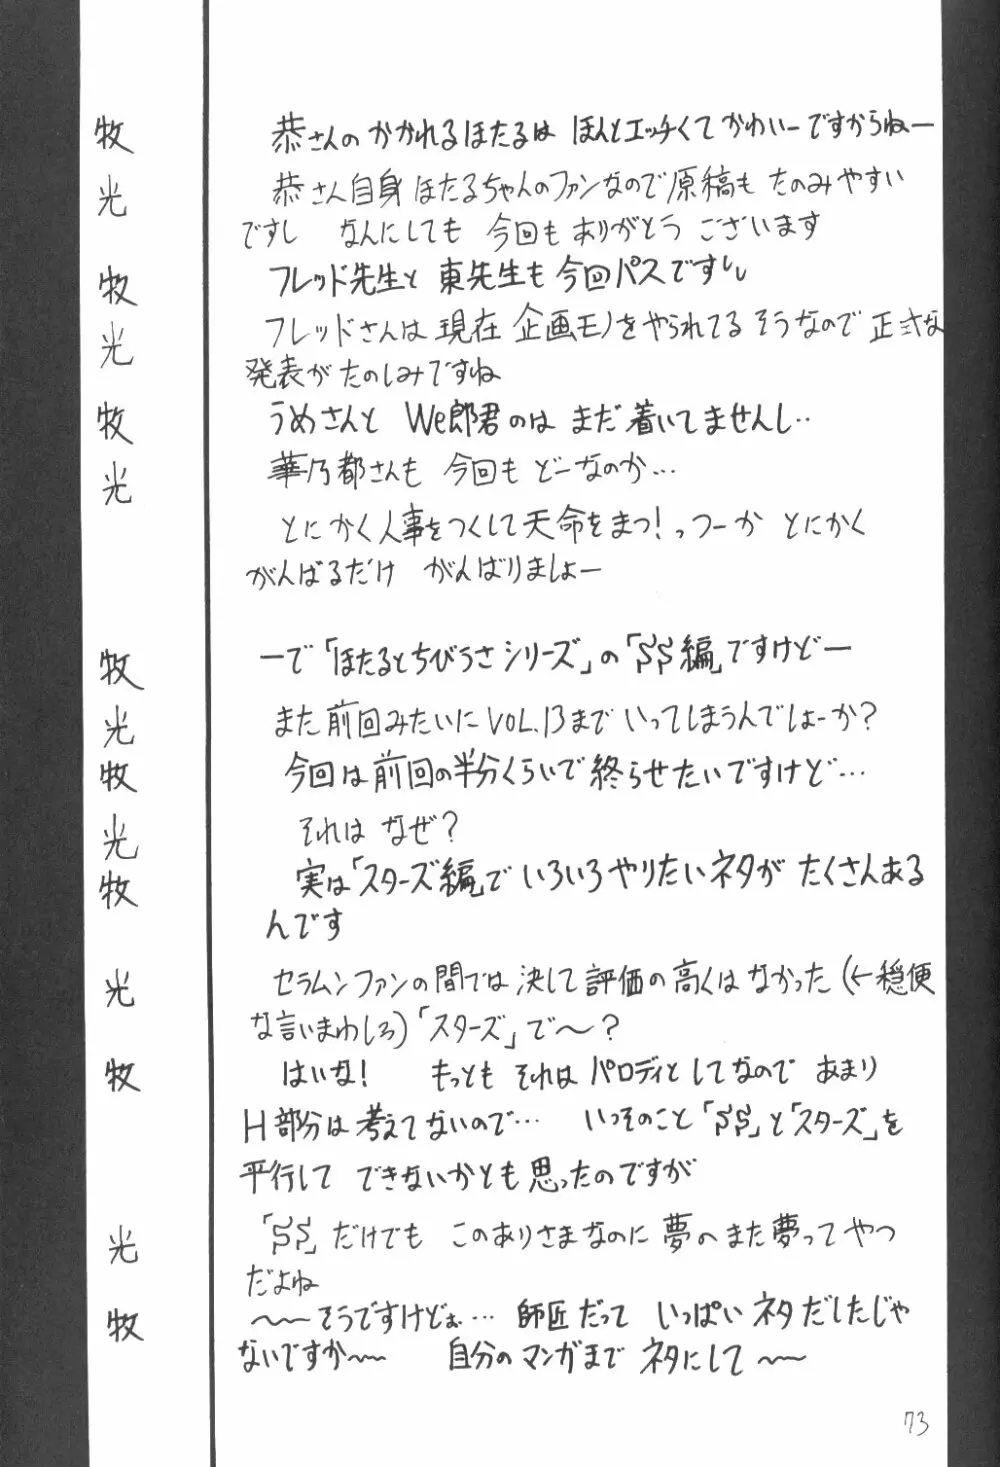 牧 恭さんのかかれるほたるは ほんとエッチくてかわいーですからねー
光 恭さん自身ほたるちゃんのファンなので原稿も たのみやすい
ですし なんにしても 今回も ありがとう ございます
牧 フレッド先生と 東先生も今回パスですし
光 フレッドさんは現在 企画モノをやられてるそうなので正式な
発表がたのしみですね
牧 うめさんと We郎君のは まだ着いてませんし..
光 華乃都さんも 今回も どーなのか...
とにかく人事をつくして天命をまつ!っつーか とにかく
がんばるだけ がんばりましょー
牧 ーで「ほたるとちびうさシリーズ」の「SS編」ですけどー
光 また前回みたいにVOL.13まで いってしまうんでしょーか?
牧 今回は前回の半分くらいで終らせたいですけど...
光 それは なぜ?
牧 実は「スターズ編」でいろいろやりたいネタが たくさんある
んです
光 セラムンファンの間では決して評価の高くはなかった(←穏便
な言いまわしろ)「スターズ」で〜?
牧 はいな! もっとも それはパロディとしてなので あまり
H部分は考えてないので... いっそのこと「SS」と「スターズ」を
平行して できないかとも思ったのですが
光 「SS」だけでも このありさまなのに 夢のまた夢ってやつ
だよね
牧 〜〜そうですけどぉ... 師匠だって いっぱいネタだしたじゃ
ないですか〜〜 自分のマンガまで ネタにして〜〜
73